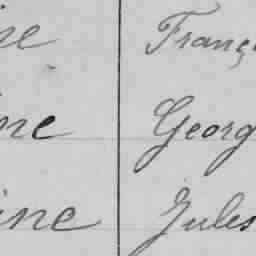 ne Franç
ne Georg
ine Jules